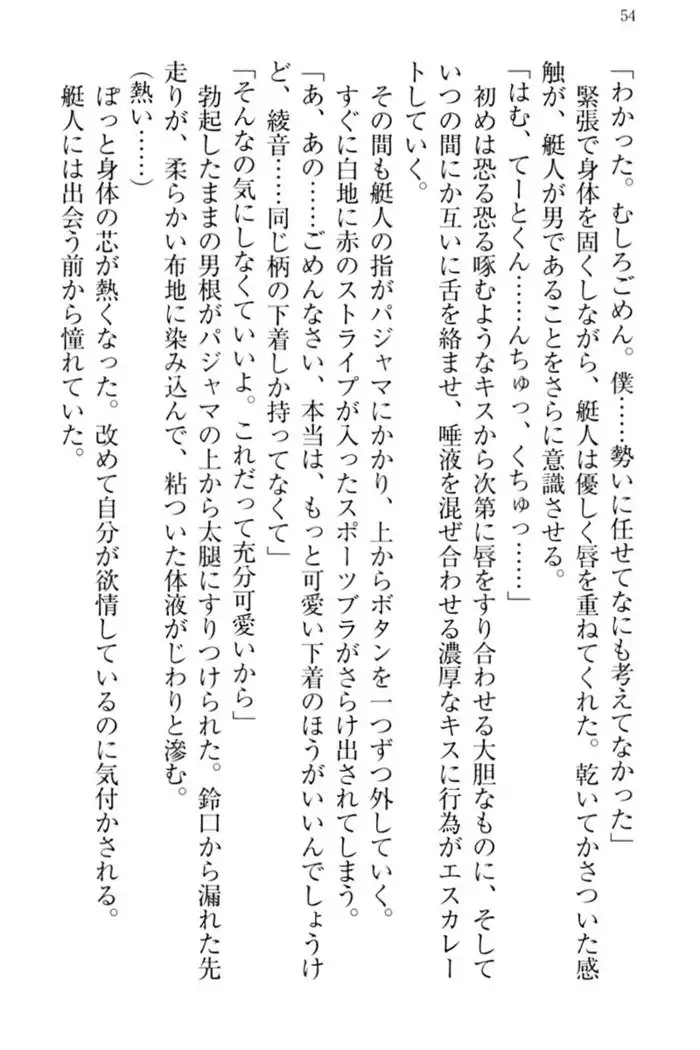 54
「わかった。むしろごめん。僕……勢いに任せてなにも考えてなかった」
緊張で身体を固くしながら、艇人は優しく唇を重ねてくれた。乾いてかさついた感
触が、艇人が男であることをさらに意識させる。
「はむ、てーとくん……んちゅっ、くちゅっ……」
初めは恐る恐る啄むようなキスから次第に唇をすり合わせる大胆なものに、そして
いつの間にか互いに舌を絡ませ、唾液を混ぜ合わせる濃厚なキスに行為がエスカレー
トしていく。
その間も艇人の指がパジャマにかかり、上からボタンを一つずつ外していく。
すぐに白地に赤のストライプが入ったスポーツブラがさらけ出されてしまう。
「あ、あの……ごめんなさい、本当は、もっと可愛い下着のほうがいいんでしょうけ
ど、綾音……同じ柄の下着しか持ってなくて」
「そんなの気にしなくていいよ。これだって充分可愛いから」
勃起したままの男根がパジャマの上から太腿にすりつけられた。鈴口から漏れた先
走りが、柔らかい布地に染み込んで、粘ついた体液がじわりと滲む。
(熱い……)
ぽっと身体の芯が熱くなった。改めて自分が欲情しているのに気付かされる。
艇人には出会う前から憧れていた。